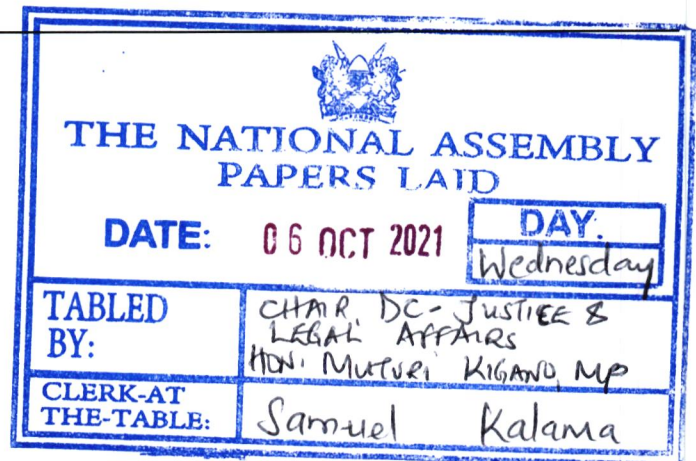 THE NATIONAL ASSEMBLY
PAPERS LAID
DATE: 06 OCT 2021
DAY:
Wednesday
TABLED
BY:
CHAIR, DC - JUSTICE &
LEGAL AFFAIRS
HON. MUTURI KIGANO, MP
CLERK-AT
THE-TABLE:
Samuel Kalama